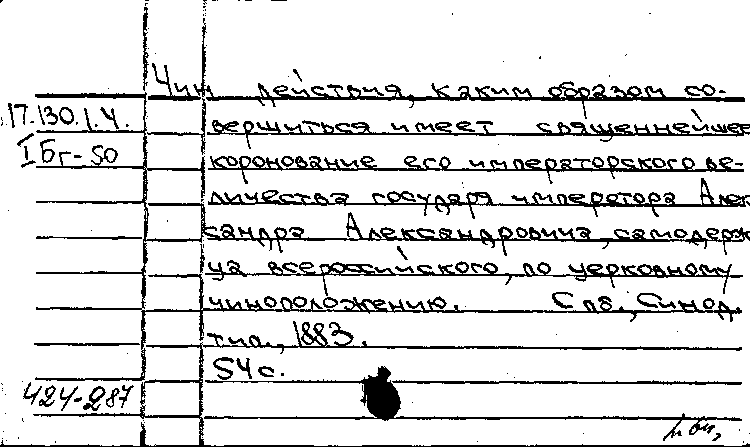 Чин действия, каким образом со-
17.130.1.4.
вершиться имеет священнейшее
I Бг-50
коронование его императорского ве-
личества государя императора Алек
сандра Александровича, самодерж
ца всероссийского, по церковному
чиноположению. Спб., Синод.
тип., 1883.
54 с.
424-287